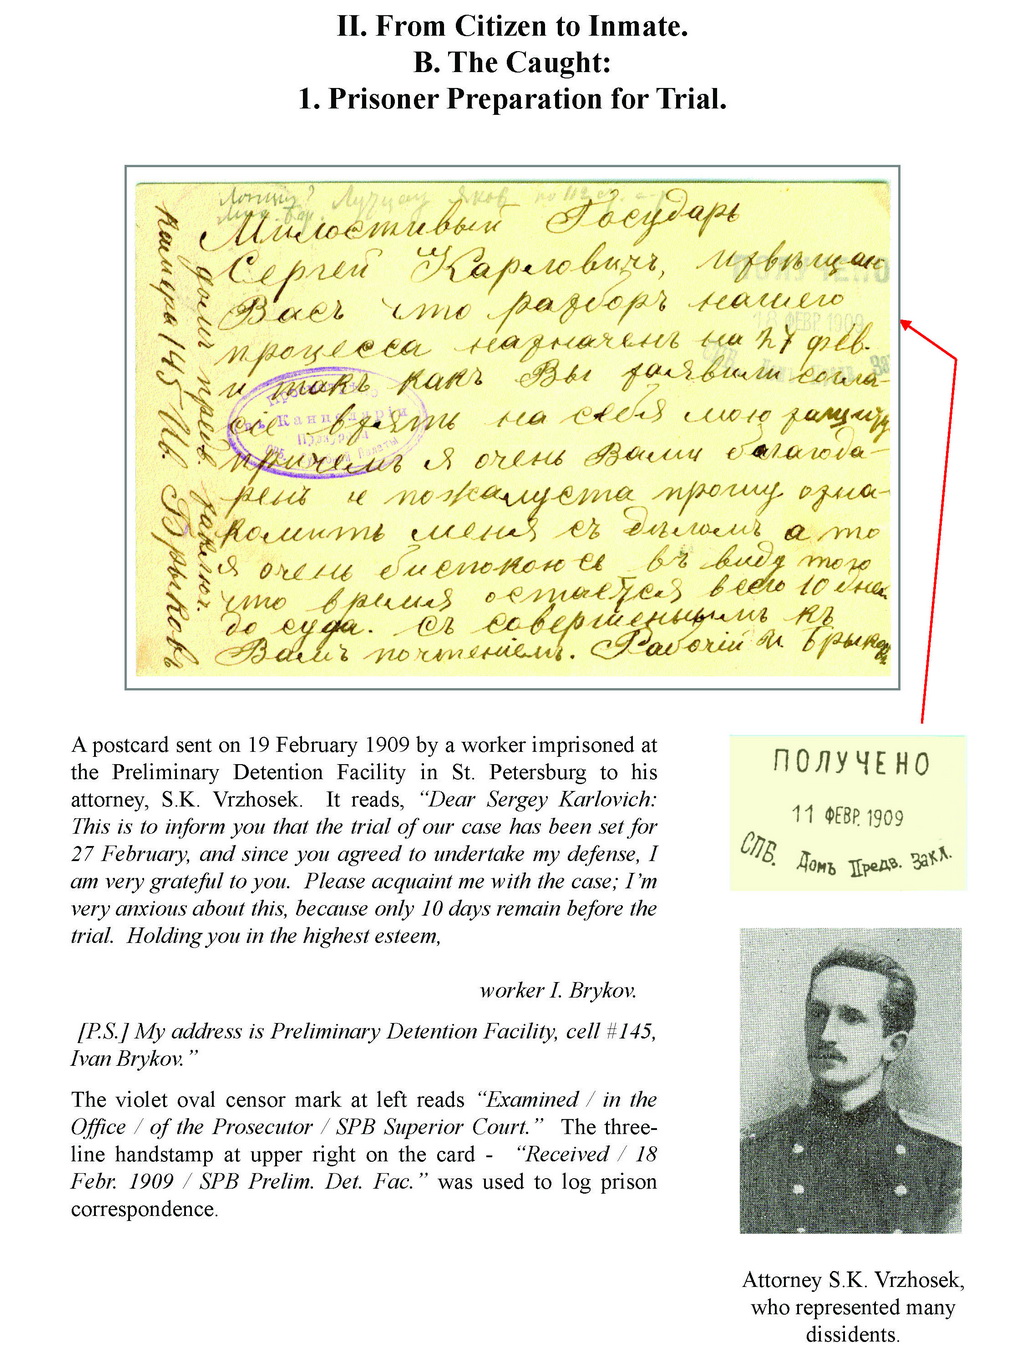 II. From Citizen to Inmate.
B. The Caught:
1. Prisoner Preparation for Trial.
Милостивый Государь
Сергей Карловичъ, извѣщаю
ПОЛУЧЕНО
Васъ что разборъ нашего
18 ФЕВР. 1909
процесса назначенъ на 27 фев.
и такъ какъ Вы заявили согла-
сіе взять на себя мою защиту
причемъ я очень Вамъ благода-
ренъ и пожалуста прошу озна-
комить меня съ дѣломъ а то
я очень биспокоюсь въ виду того
что время остаётся всего 10 дней
до суда. Съ совершеннымъ къ
Вамъ почтеніемъ. Рабочій И. Брыковъ
домъ пред. заключ.
камера 145 Ив. Брыковъ
въ Канцеляріи
Прокурора
СПБ. Палаты
A postcard sent on 19 February 1909 by a worker imprisoned at
the Preliminary Detention Facility in St. Petersburg to his
attorney, S.K. Vrzhosek. It reads, “Dear Sergey Karlovich:
This is to inform you that the trial of our case has been set for
27 February, and since you agreed to undertake my defense, I
am very grateful to you. Please acquaint me with the case; I’m
very anxious about this, because only 10 days remain before the
trial. Holding you in the highest esteem,
worker I. Brykov.
[P.S.] My address is Preliminary Detention Facility, cell #145,
Ivan Brykov.”
The violet oval censor mark at left reads “Examined / in the
Office / of the Prosecutor / SPB Superior Court.” The three-
line handstamp at upper right on the card - “Received / 18
Febr. 1909 / SPB Prelim. Det. Fac.” was used to log prison
correspondence.
ПОЛУЧЕНО
11 ФЕВР. 1909
СПБ. Домъ Предв. Закл.
Attorney S.K. Vrzhosek,
who represented many
dissidents.